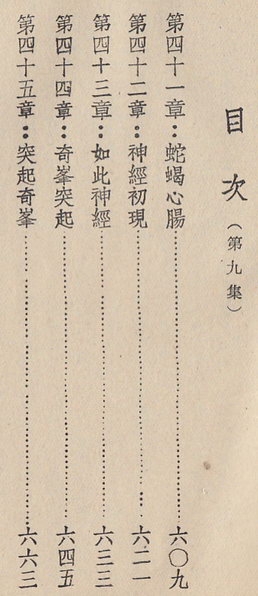 目次（第九集）
第四十一章：蛇蝎心腸……六〇九
第四十二章：神經初現……六二一
第四十三章：如此神經……六三三
第四十四章：奇峯突起……六四五
第四十五章：突起奇峯……六六三